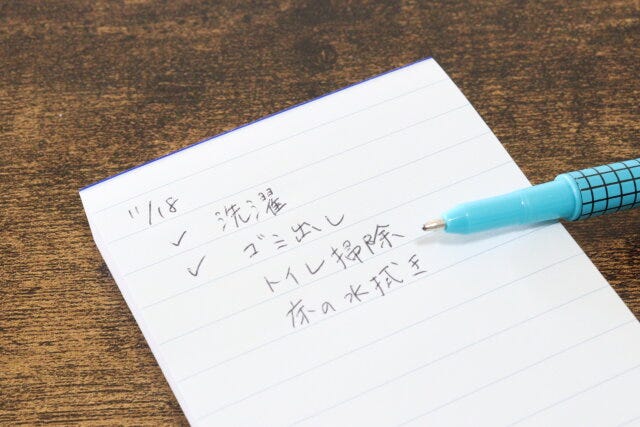 11/18
✓ 洗濯
✓ ゴミ出し
トイレ掃除
床の水拭き